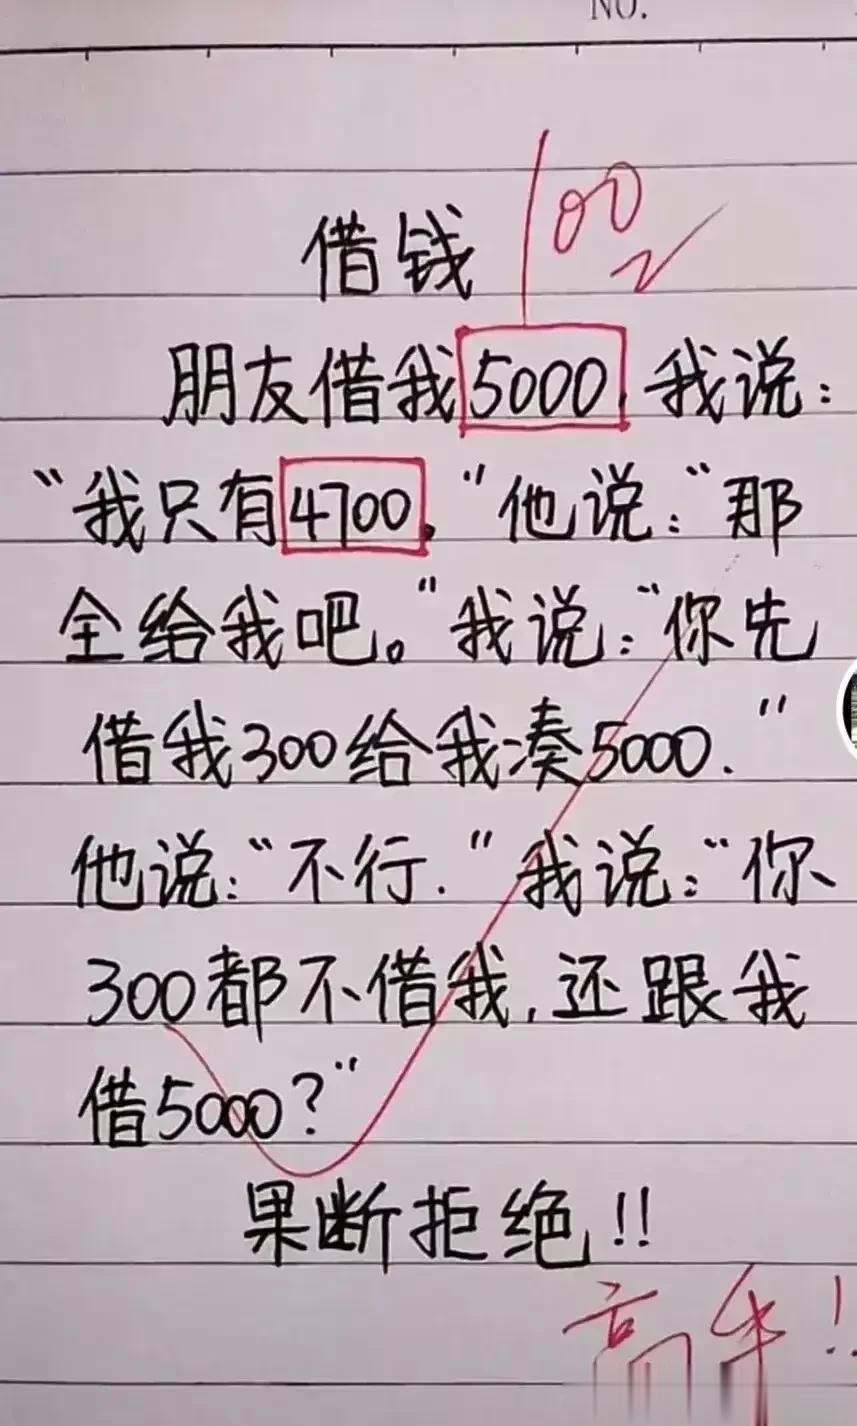 NO.
借钱 100
朋友借我5000,我说:
“我只有4700.”他说:“那
全给我吧。”我说:“你先
借我300给我凑5000.”
他说:“不行.”我说:“你
300都不借我,还跟我
借5000?”
果断拒绝!!
高手!